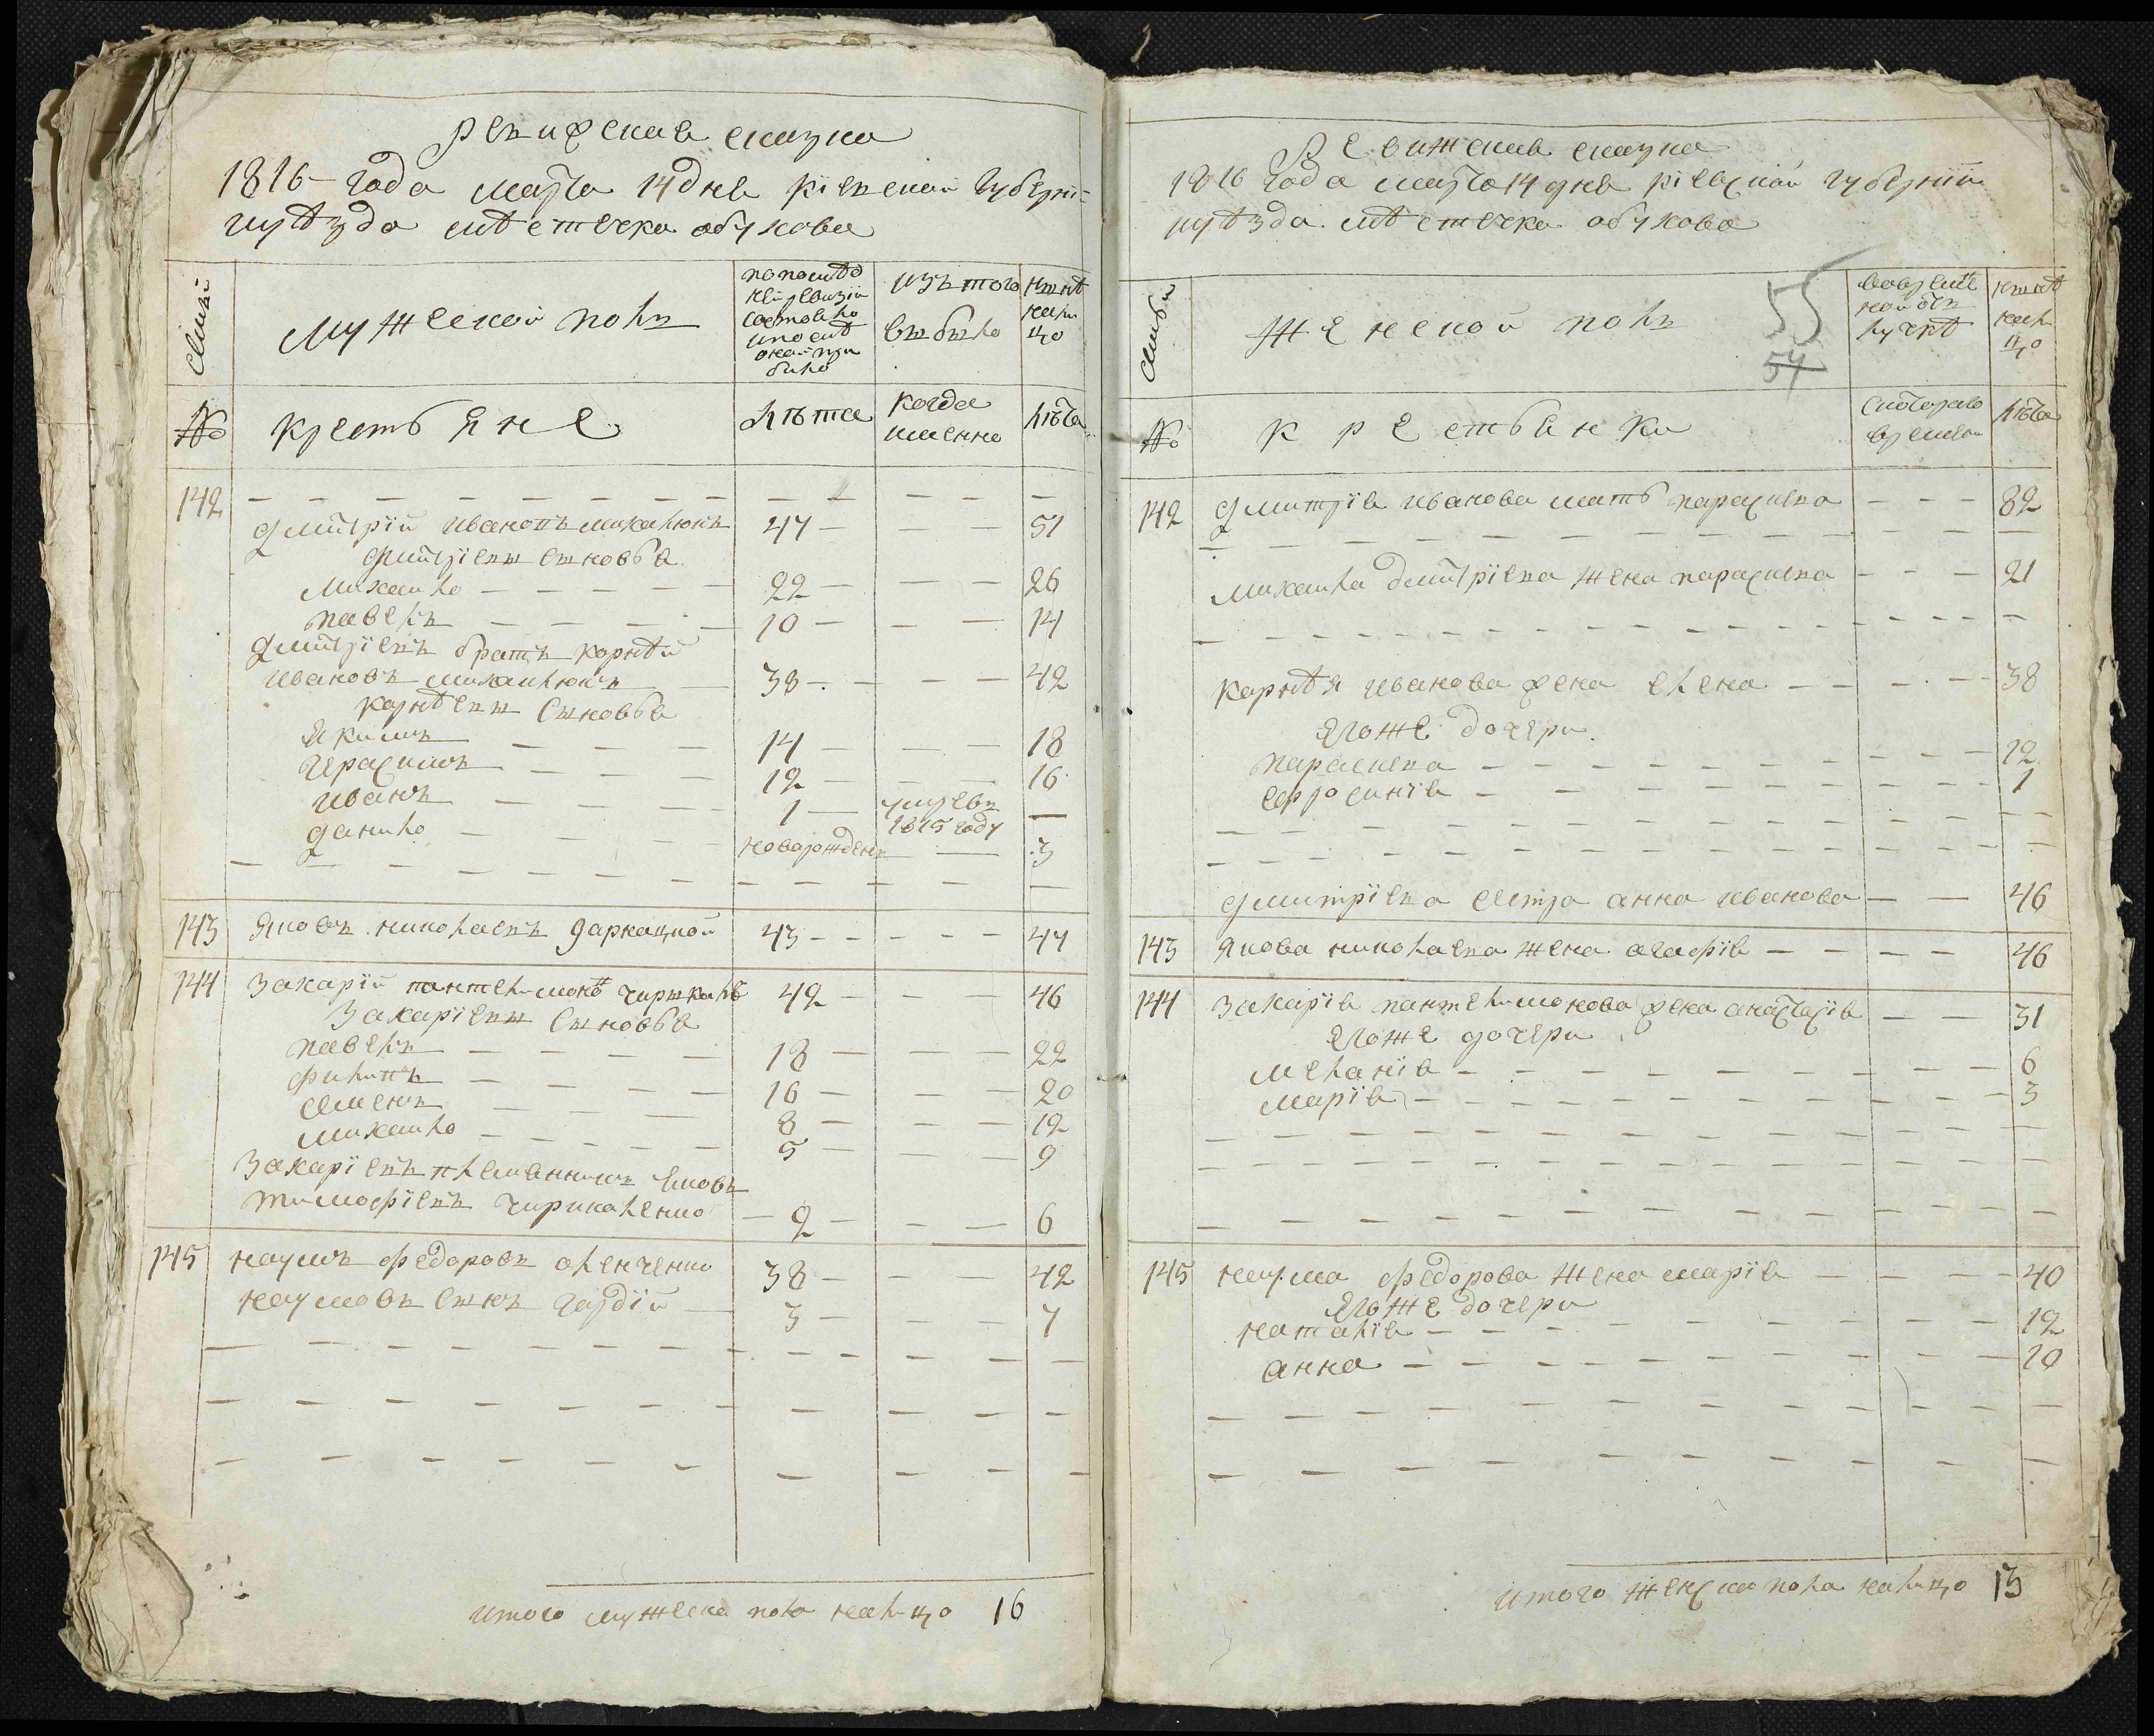 ревижская сказка
1816 года марта 14 дня кіевской губерніи
и уѣзда мѣстечка обухова
семьи
мужеской полъ
по послѣд
ней ревизіи
состояло
и послѣ
оной при
было
изъ того
выбыло
ныне
нали
цо
№
крестьяне
лѣта
когда
именно
лѣта
142
дмитрій ивановъ михалюкъ 47 51
дмитріевы сыновья
михайло 22 26
павелъ 10 14
дмитріевъ братъ корнѣй
ивановъ михалюкъ 38 42
корнѣевы сыновья
якимъ 14 18
герасимъ 12 16
иванъ 1 умре въ
1815 году
данило новорожденъ 3
143 яковъ николаевъ 43 47
144 захарій пантелимонъ 42 46
захаріевы сыновья
павелъ 18 22
филипъ 16 20
семенъ 8 12
михайло 5 9
захаріевъ племянникъ яковъ
тимофіевъ чирикаленко 2 6
145 наумъ федоровъ оленченко 38 42
наумовъ сынъ гордій 3 7
итого мужеска пола налицо 16
Ревижская сказка
1816 года марта 14 дня кіевской губерніи
и уѣзда мѣстечка обухова
55
54
семьи
женской полъ
во время
ной отъ
лучкѣ
ныне
нали
цо
№
крестьянки
с которого
времени
лѣта
142 дмитрія иванова мать парасκева 82
михайла дмитріева жена параскева 21
корнѣя иванова жена елена 38
ягоже дочери
параскева 12
ефросинія 1
дмитріева сестра анна иванова 46
143 якова николаева жена агафія 46
144 захарія пантелимонова жена анастасія 31
ягоже дочери
меланія 6
марія 3
145 наума федорова жена марія 40
ягоже дочери
наталія 12
анна 10
итого женска пола налицо 13